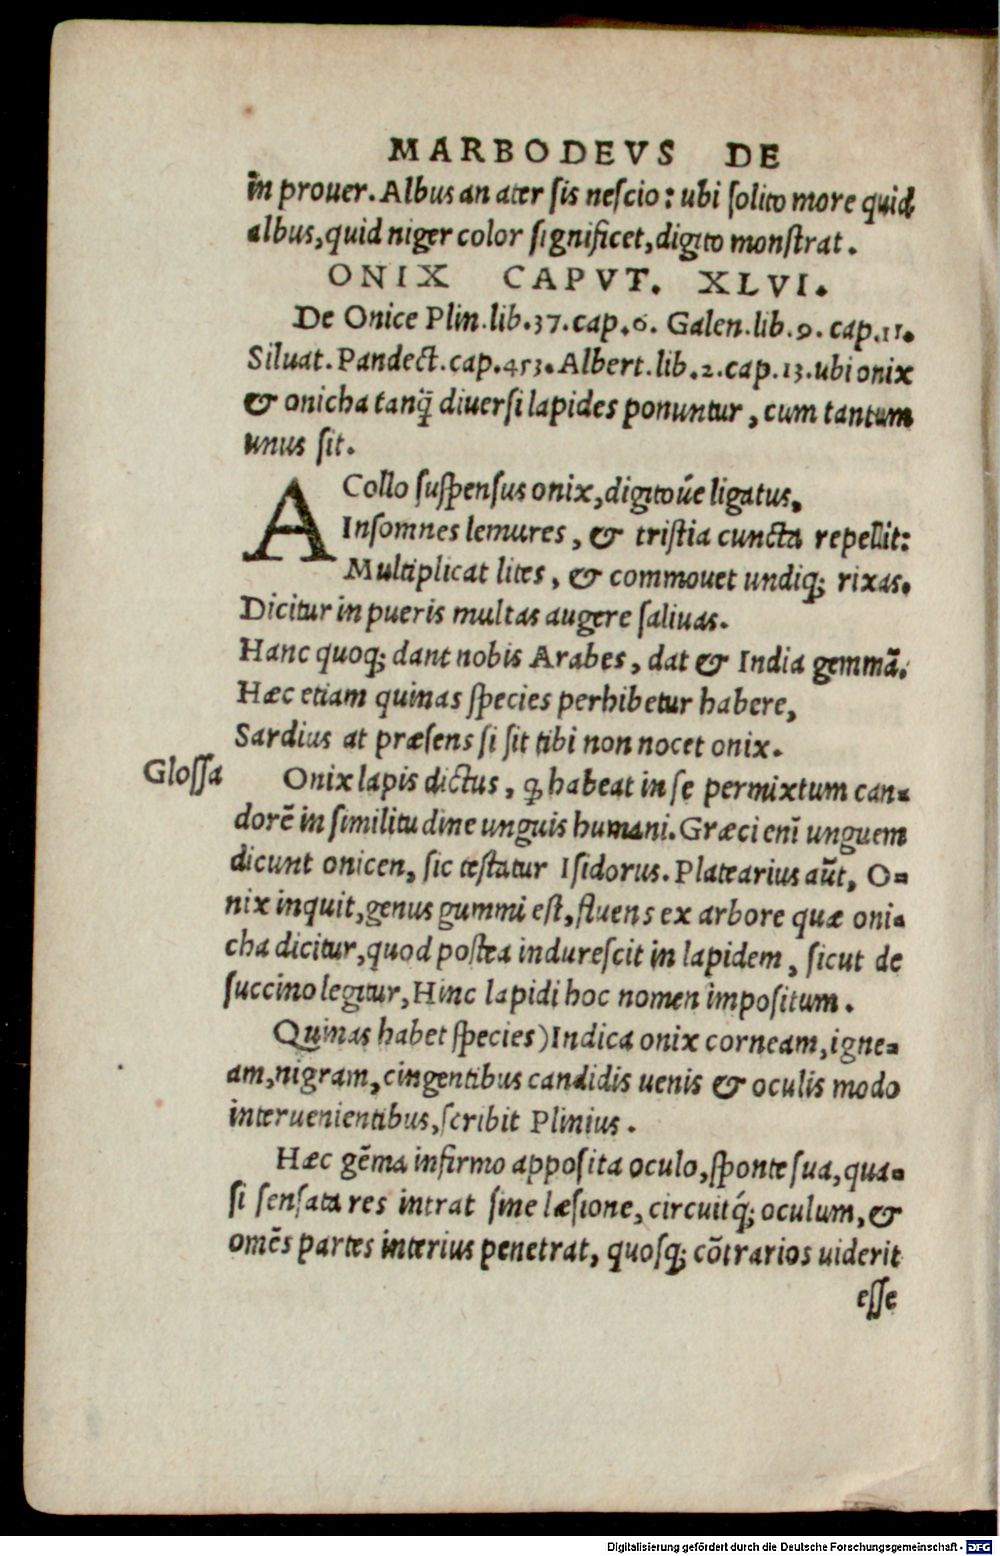 MARBODEVS DE
in prouer. Albus an ater sis nescio: ubi solito more quid
albus, quid niger color significet, digito monstrat.
ONIX CAPVT. XLVI.
De Onice Plin. lib. 37. cap. 6. Galen. lib. 9. cap. 11.
Siluat. Pandect. cap. 453. Albert. lib. 2. cap. 13. ubi onix
& onicha tanq̃ diuersi lapides ponuntur, cum tantum
unus sit.
A Collo suspensus onix, digitoúe ligatus,
Insomnes lemures, & tristia cuncta repellit:
Multiplicat lites, & commouet undiq; rixas.
Dicitur in pueris multas augere saliuas.
Hanc quoq; dant nobis Arabes, dat & India gemmã.
Hæc etiam quinas species perhibetur habere,
Sardius at præsens si sit tibi non nocet onix.
Glossa
Onix lapis dictus, ꝙ habeat in se permixtum can-
dorẽ in similitudine unguis humani. Græci enĩ unguem
dicunt onicen, sic testatur Isidorus. Platearius aũt, O-
nix inquit, genus gummi est, fluens ex arbore quæ oni-
cha dicitur, quod postea indurescit in lapidem, sicut de
succino legitur, Hinc lapidi hoc nomen impositum.
Quinas habet species) Indica onix corneam, igne-
am, nigram, cingentibus candidis uenis & oculis modo
interuenientibus, scribit Plinius.
Hæc gẽma infirmo apposita oculo, sponte sua, qua-
si sensata res intrat sine læsione, circuitq́; oculum, &
omẽs partes interius penetrat, quosq; cõtrarios uiderit
esse
Digitalisierung gefördert durch die Deutsche Forschungsgemeinschaft - DFG